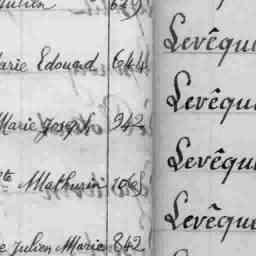 Julien 629
Marie Edouard 644
Marie Joseph 942
te Mathurin 1065
e Julien Marie 842
Levêqu
Levêqu
Levêqu
Levêque